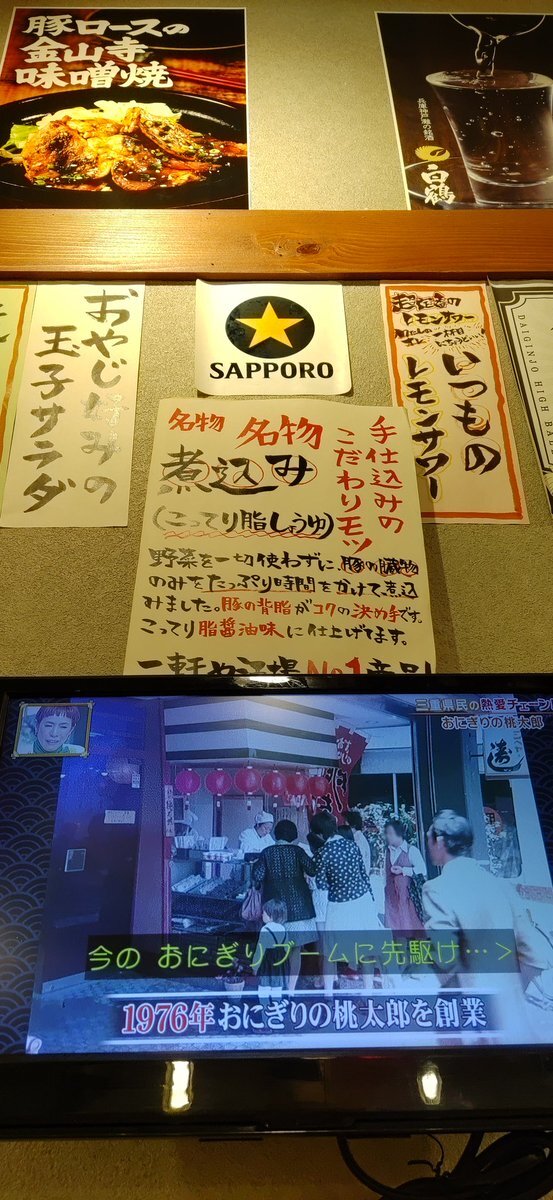 豚ロースの
金山寺
味噌焼
兵庫神戸灘の銘酒
白鶴
おやじ好みの
玉子サラダ
SAPPORO
レモンサワー
いつもの
レモンサワー
DAIGINJO HIGH BA
手仕込みの
こだわりモツ
名物 名物
煮込み
(こってり脂しょうゆ)
野菜を一切使わずに、豚の臓物
のみをたっぷり時間をかけて煮込
みました。豚の背脂がコクの決め手です。
こってり脂醤油味に仕上げてます。
一軒め酒場No1商品!
三重県民の熱愛チェーン
おにぎりの桃太郎
今の おにぎりブームに先駆け…>
1976年おにぎりの桃太郎を創業